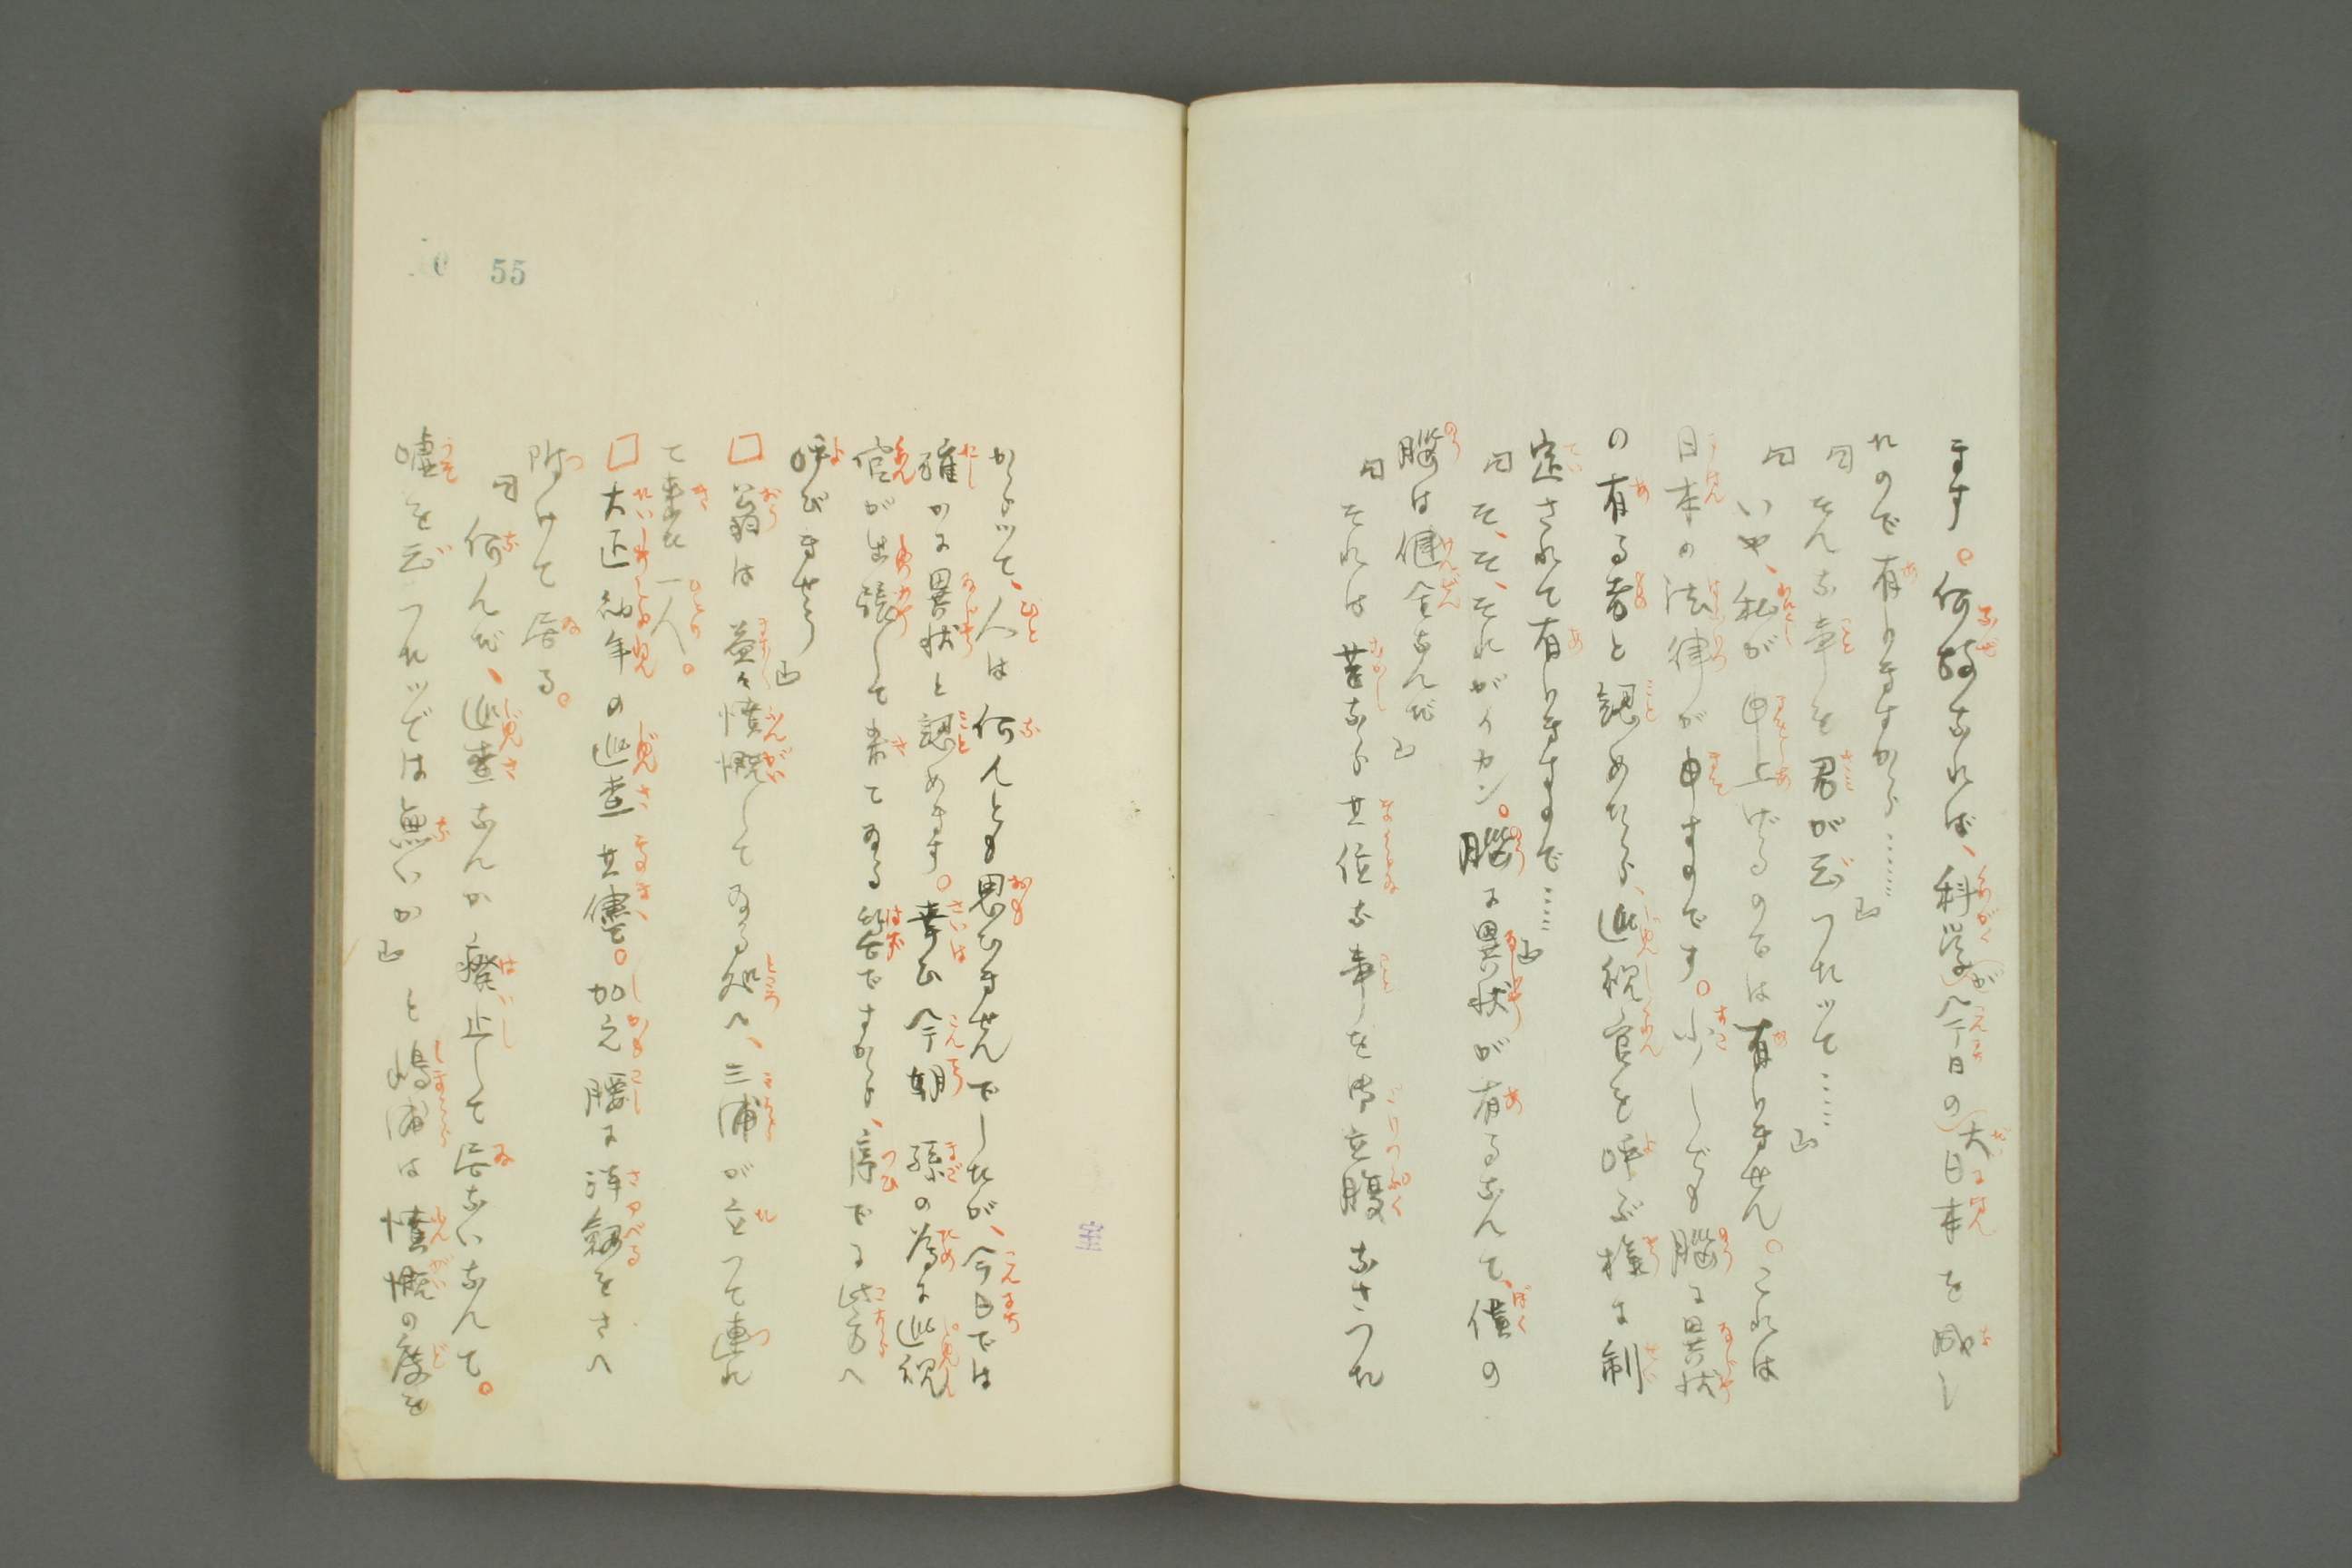 ます。何故なれば、科学が今日の大日本を成し
たので有りますから……』
『そんな事を君が云つたツて……』
『いや、私が申上げるのでは有りません。これは
日本の法律が申すのです。少しでも脳に異状
の有る者と認めたら、巡視官を呼ぶ様に制
定されて有りますので……』
『そ、そ、それがイカン。脳に異状が有るなんて、僕の
脳は健全なんだ』
『それは昔なら其位な事を御立腹なさつた
からツて、人は何んとも思ひませんでしたが、今日では
確かに異状と認めます。幸ひ今朝孫の為に巡視
官が出張して来てゐる筈ですから、序でに此方へ
呼びませう』
□翁は益々憤慨してゐる処へ、三浦が立つて連れ
て来た一人。
□大正初年の巡査其儘で。加之腰に洋剣をさへ
附けて居る。
『何んだ、巡査なんか廃止して居ないなんて。
嘘を云つたツでは無いか』と嶋浦は憤慨の度を
55